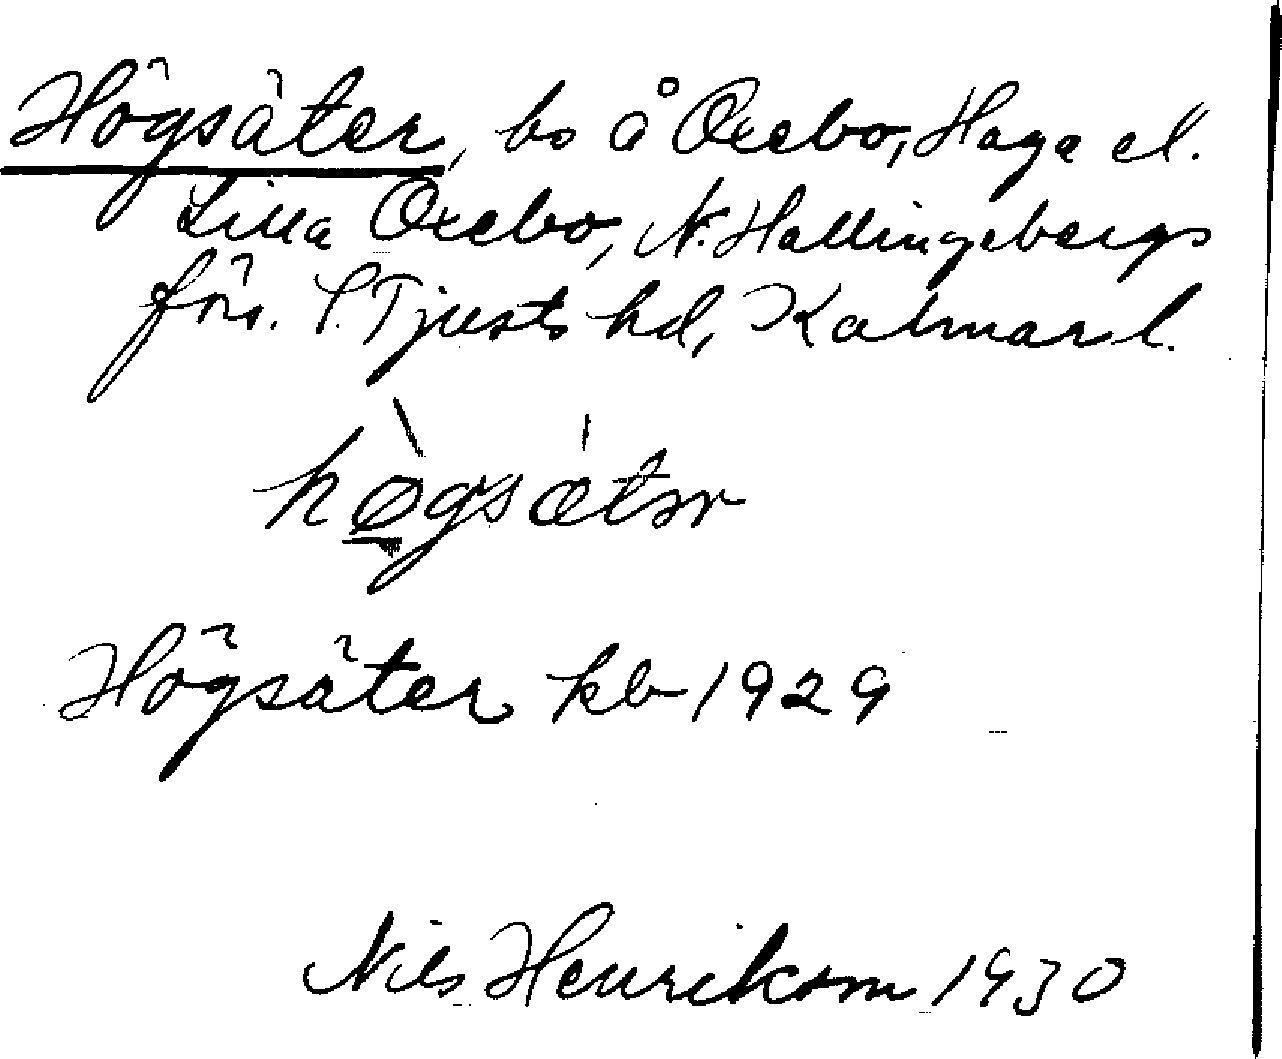 Högsäter, bs å Oxebo, Haga el.
Lilla Oxebo, N. Hallingebergs
förs. S. Tjusts hd, Kalmar l.
hø̀gsætər
Högsäter kb 1929
Nils Henrikson 1930